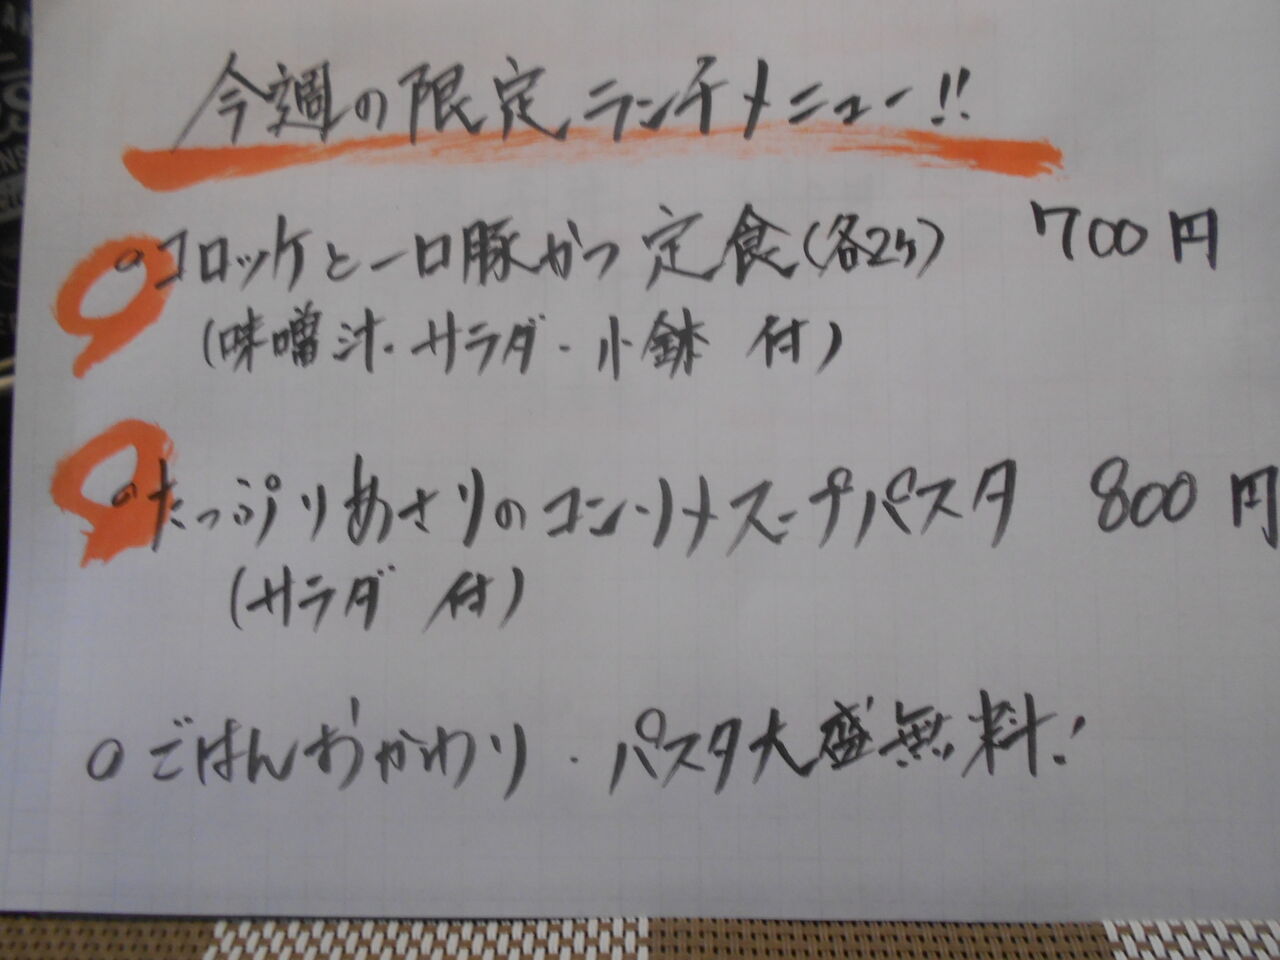 今週の限定ランチメニュー!!
○コロッケと一口豚かつ定食(各2ヶ) 700円
(味噌汁・サラダ・小鉢 付)
○たっぷりあさりのコンソメスープパスタ 800円
(サラダ 付)
○ごはんおかわり・パスタ大盛無料!